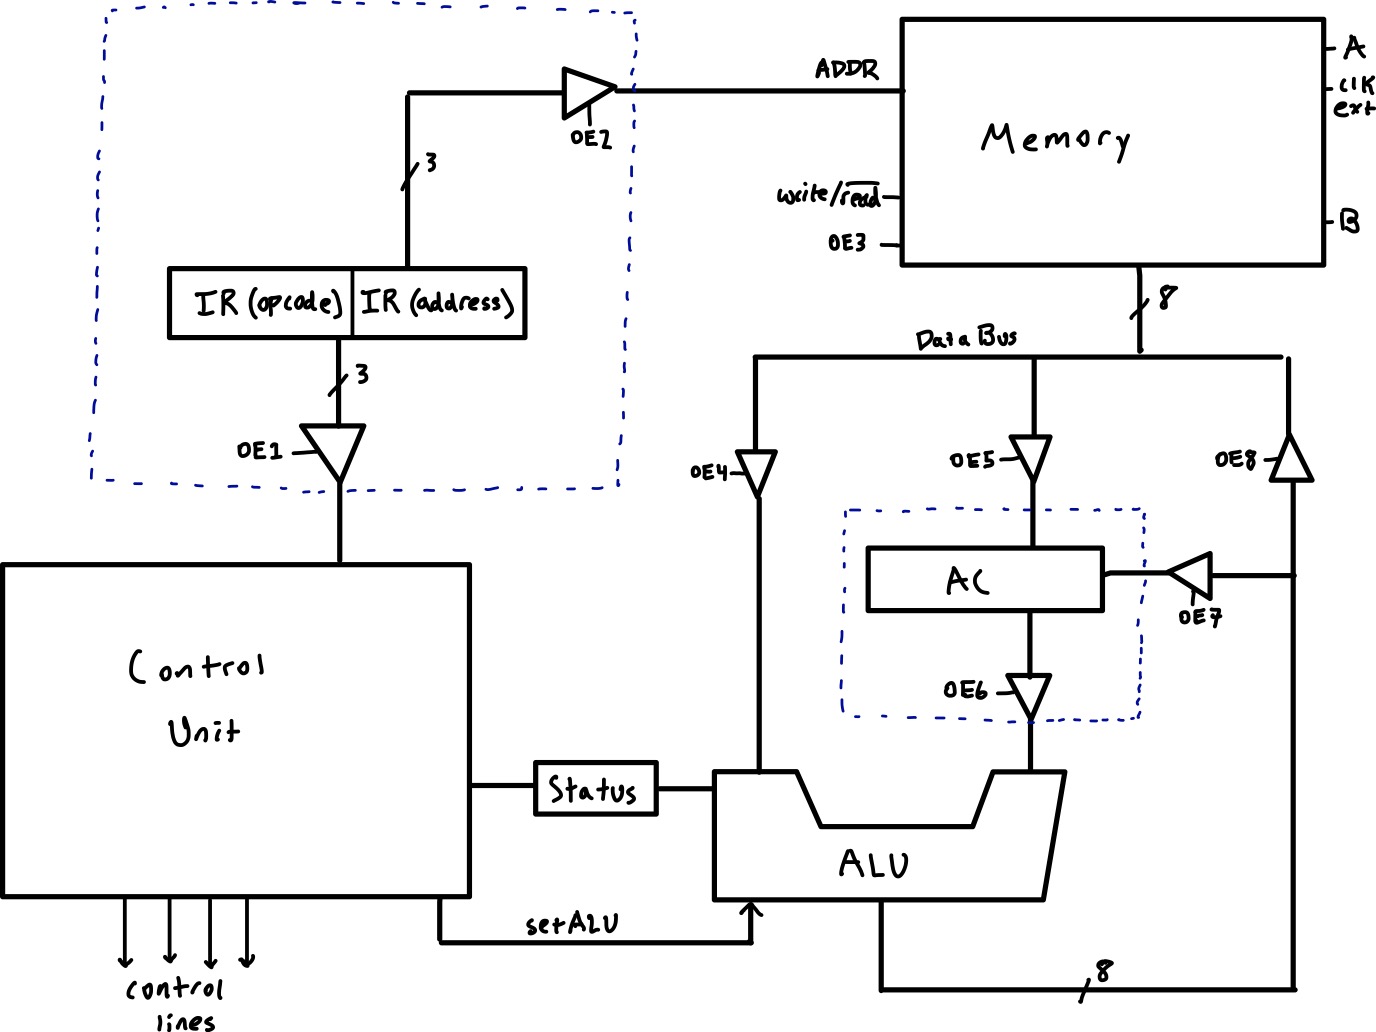 ADDR
A
CLK
ext
OE2
Memory
3
write/read
B
OE3
IR (opcode)
IR (address)
8
Data Bus
3
OE1
OE4
OE5
OE8
AC
OE7
Control
Unit
OE6
Status
ALU
setALU
8
control
lines